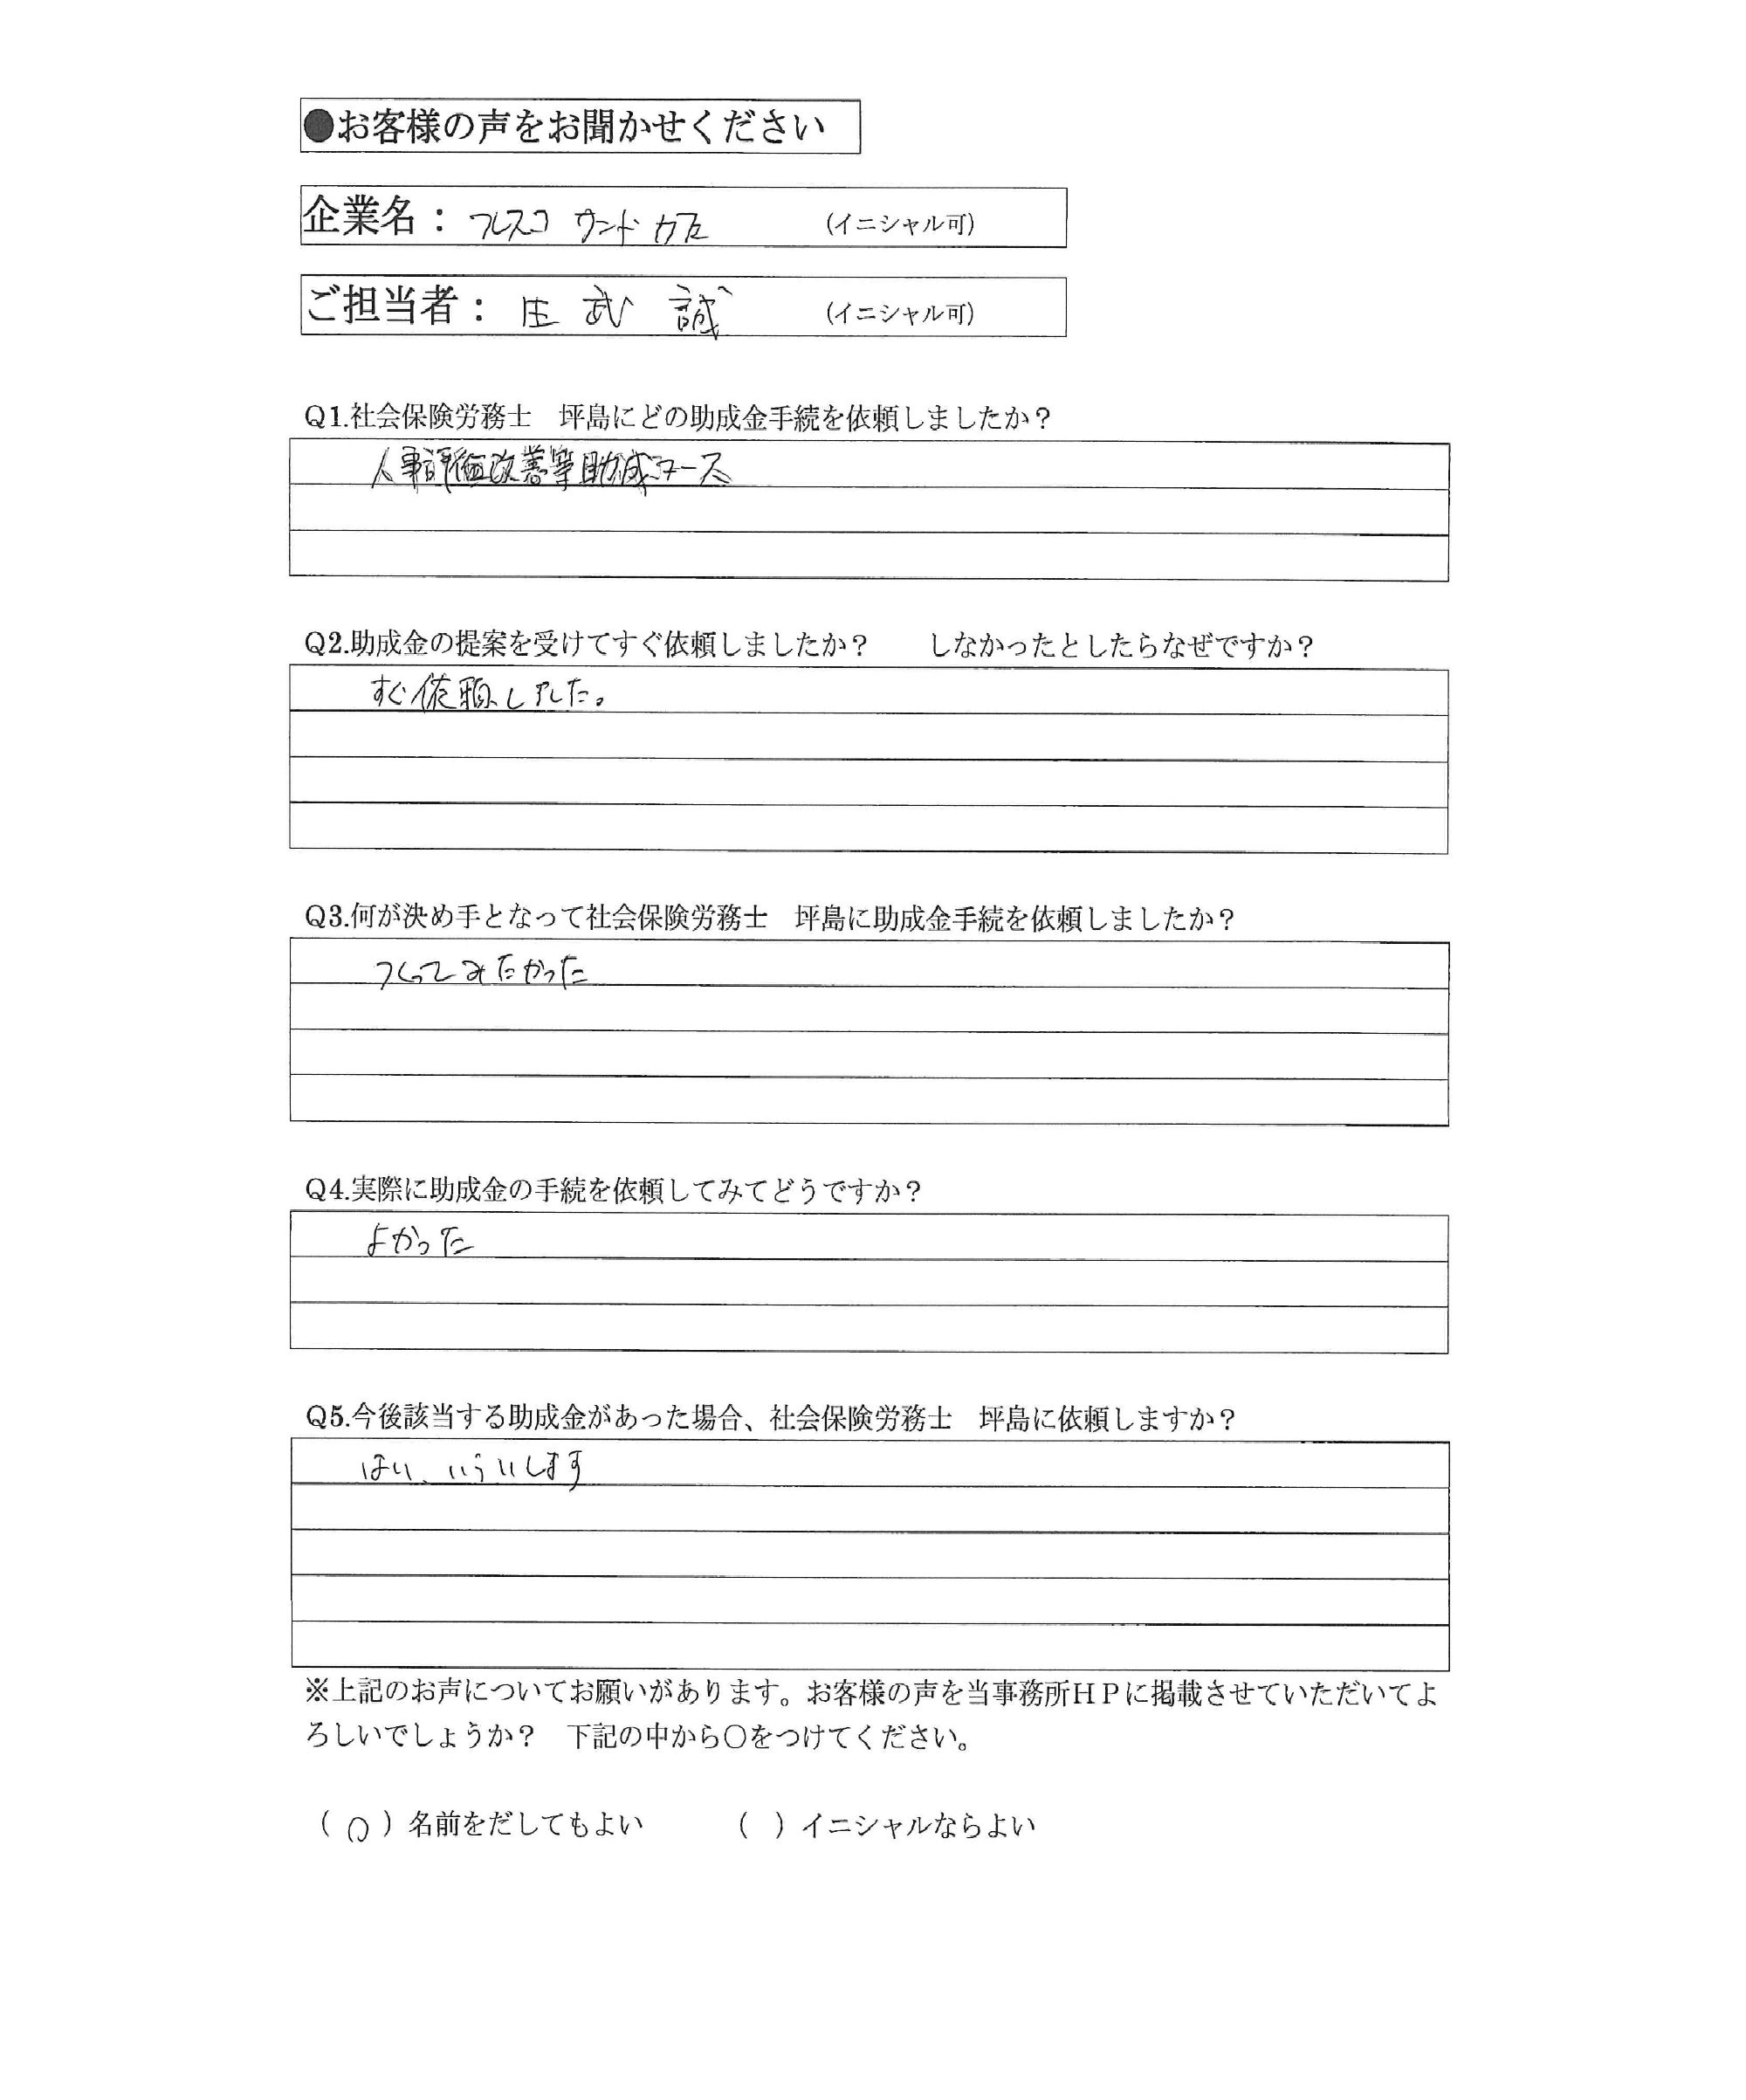 ●お客様の声をお聞かせください
企業名： フレスコ サンドカフェ (イニシャル可)
ご担当者： 庄武 誠 (イニシャル可)
Q1.社会保険労務士　坪島にどの助成金手続を依頼しましたか？
人事評価改善等助成コース
Q2.助成金の提案を受けてすぐ依頼しましたか？　　しなかったとしたらなぜですか？
すぐ依頼しました。
Q3.何が決め手となって社会保険労務士　坪島に助成金手続を依頼しましたか？
つくってみたかった
Q4.実際に助成金の手続を依頼してみてどうですか？
よかった
Q5.今後該当する助成金があった場合、社会保険労務士　坪島に依頼しますか？
はい、いらいします
※上記のお声についてお願いがあります。お客様の声を当事務所ＨＰに掲載させていただいてよ
ろしいでしょうか？　下記の中から〇をつけてください。
（ ○ ）名前をだしてもよい　　　（　）イニシャルならよい